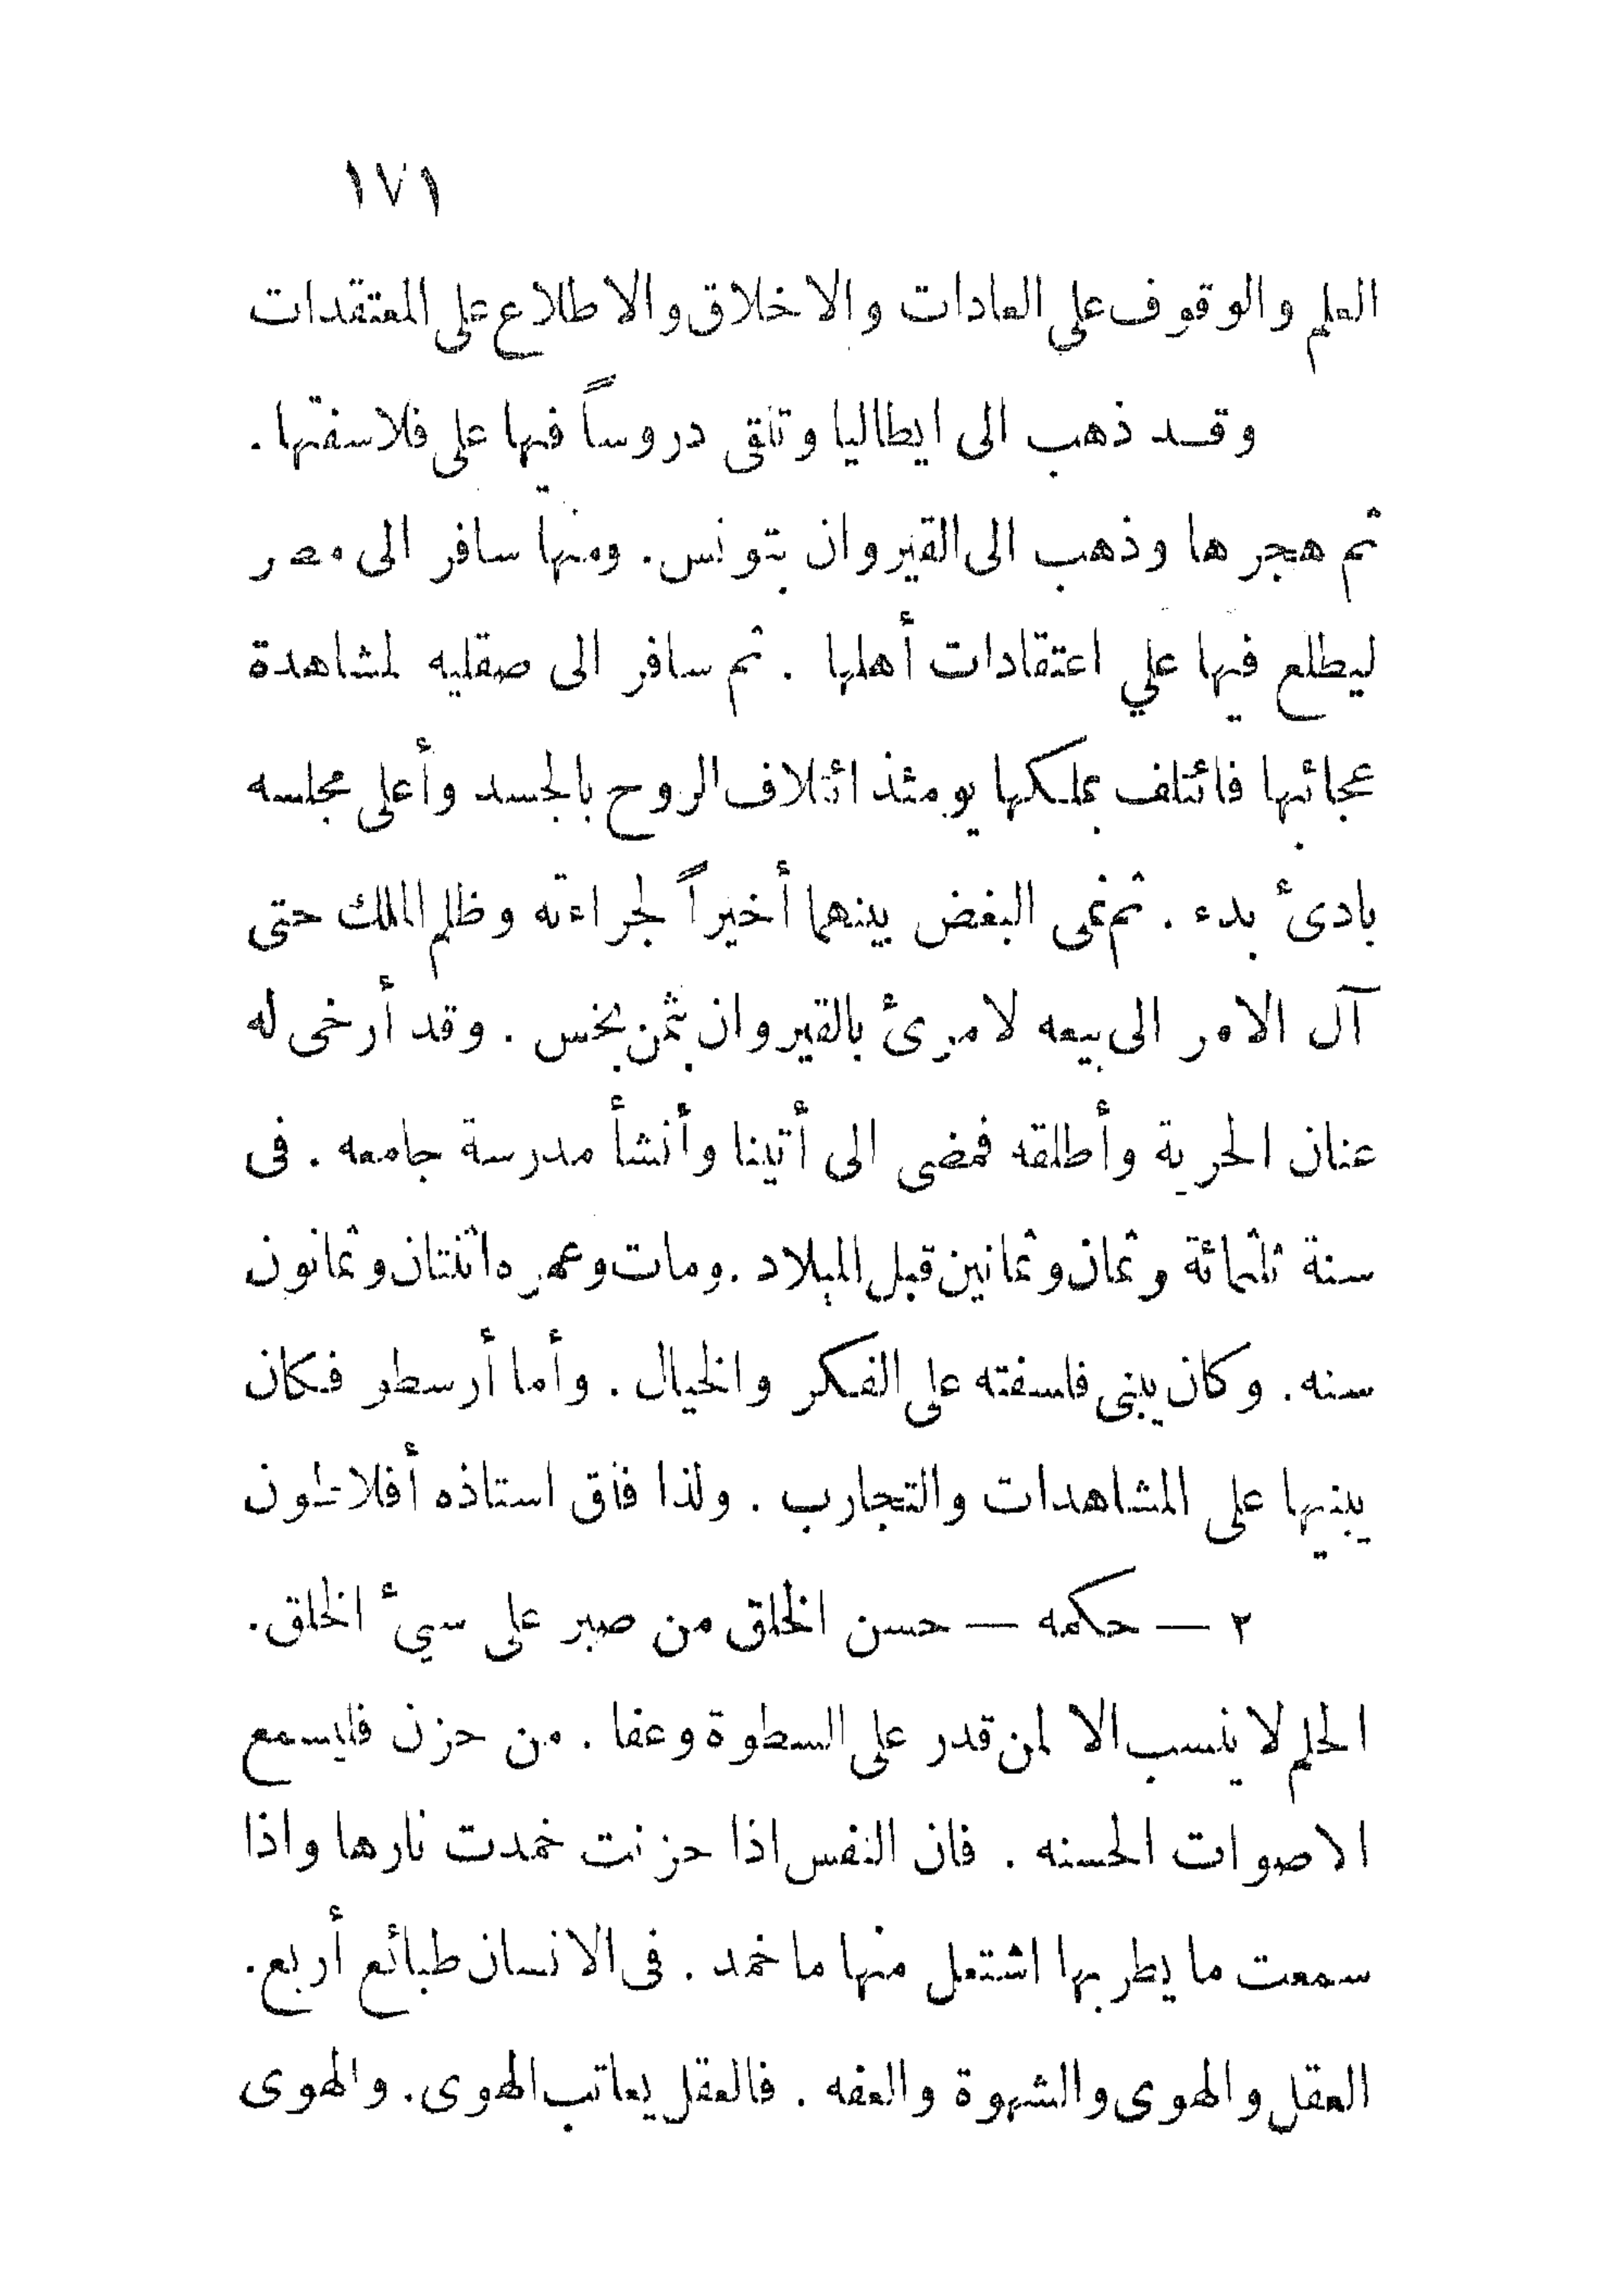 ١٧١
العلم والوقوف على العادات والاخلاق والاطلاع على المعتقدات
وقد ذهب الى ايطاليا وتلقى دروساً فيها على فلاسفتها .
ثم هجرها وذهب الى القيروان بتونس . ومنها سافر الى مصر
ليطلع فيها علي اعتقادات أهلها . ثم سافر الى صقليه لمشاهدة
عجائبها فائتلف بملكها يومئذ ائتلاف الروح بالجسد وأعلى مجلسه
بادئ بدء . ثم نمى البغض بينهما أخيراً لجراءته وظلم الملك حتى
آل الامر الى بيعه لامرئ بالقيروان بثمن بخس . وقد أرخى له
عنان الحرية وأطلقه فمضى الى أتينا وأنشأ مدرسة جامعه . فى
سنة ثلثمائة وثمان وثمانين قبل الميلاد . ومات وعمره اثنتان وثمانون
سنه . وكان يبنى فلسفته على الفكر والخيال . وأما أرسطو فكان
يبنيها على المشاهدات والتجارب . ولذا فاق استاذه أفلاطون
٢ — حكمه — حسن الخلق من صبر على سيئ الخلق .
الحلم لا ينسب الا لمن قدر على السطوة وعفا . من حزن فليسمع
الاصوات الحسنه . فان النفس اذا حزنت خمدت نارها واذا
سمعت ما يطربها اشتعل منها ما خمد . فى الانسان طبائع أربع .
العقل والهوى والشهوة والعفه . فالعقل يعاتب الهوى . والهوى